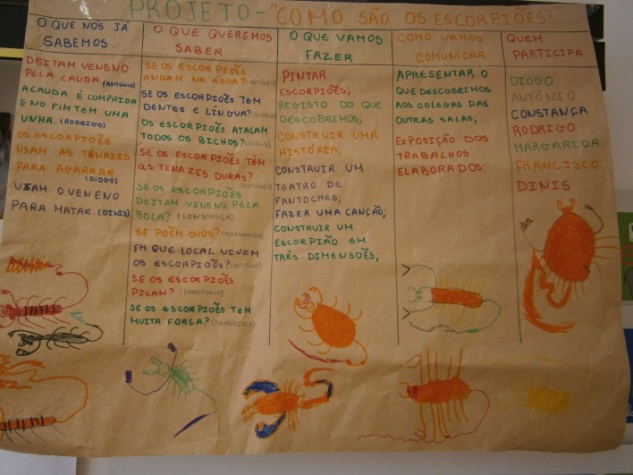 PROJETO - "COMO SÃO OS ESCORPIÕES?"
O QUE NÓS JÁ
SABEMOS
DEITAM VENENO
PELA CAUDA (ANTÓNIO)
A CAUDA É COMPRIDA
E NO FIM TEM UMA
UNHA. (RODRIGO)
OS ESCORPIÕES
USAM AS TENAZES
PARA AGARRAR
(DIOGO)
USAM O VENENO
PARA MATAR. (DINIS)
O QUE QUEREMOS
SABER
SE OS ESCORPIÕES
ANDAM NA ÁGUA?
SE OS ESCORPIÕES TEM
DENTES E LÍNGUA?
OS ESCORPIÕES ATACAM
TODOS OS BICHOS?
SE OS ESCORPIÕES TÊM
AS TENAZES DURAS?
SE OS ESCORPIÕES
DEITAM VENENO PELA
BOCA? (CONSTANÇA)
SE POÊM OVOS?
EM QUE LOCAL VIVEM
OS ESCORPIÕES?
SE OS ESCORPIÕES
PICAM?
SE OS ESCORPIÕES TEM
MUITA FORÇA?
O QUE VAMOS
FAZER
PINTAR
ESCORPIÕES;
REGISTO DO QUE
DESCOBRIMOS;
CONSTRUIR UMA
HISTÓRIA;
CONSTRUIR UM
TEATRO DE
FANTOCHES;
FAZER UMA CANÇÃO;
CONSTRUIR UM
ESCORPIÃO EM
TRÊS DIMENSÕES;
COMO VAMOS
COMUNICAR
APRESENTAR O
QUE DESCOBRIMOS
AOS COLEGAS DAS
OUTRAS SALAS;
EXPOSIÇÃO DOS
TRABALHOS
ELABORADOS
QUEM
PARTICIPA
DIOGO
ANTÓNIO
CONSTANÇA
RODRIGO
MARGARIDA
FRANCISCO
DINIS